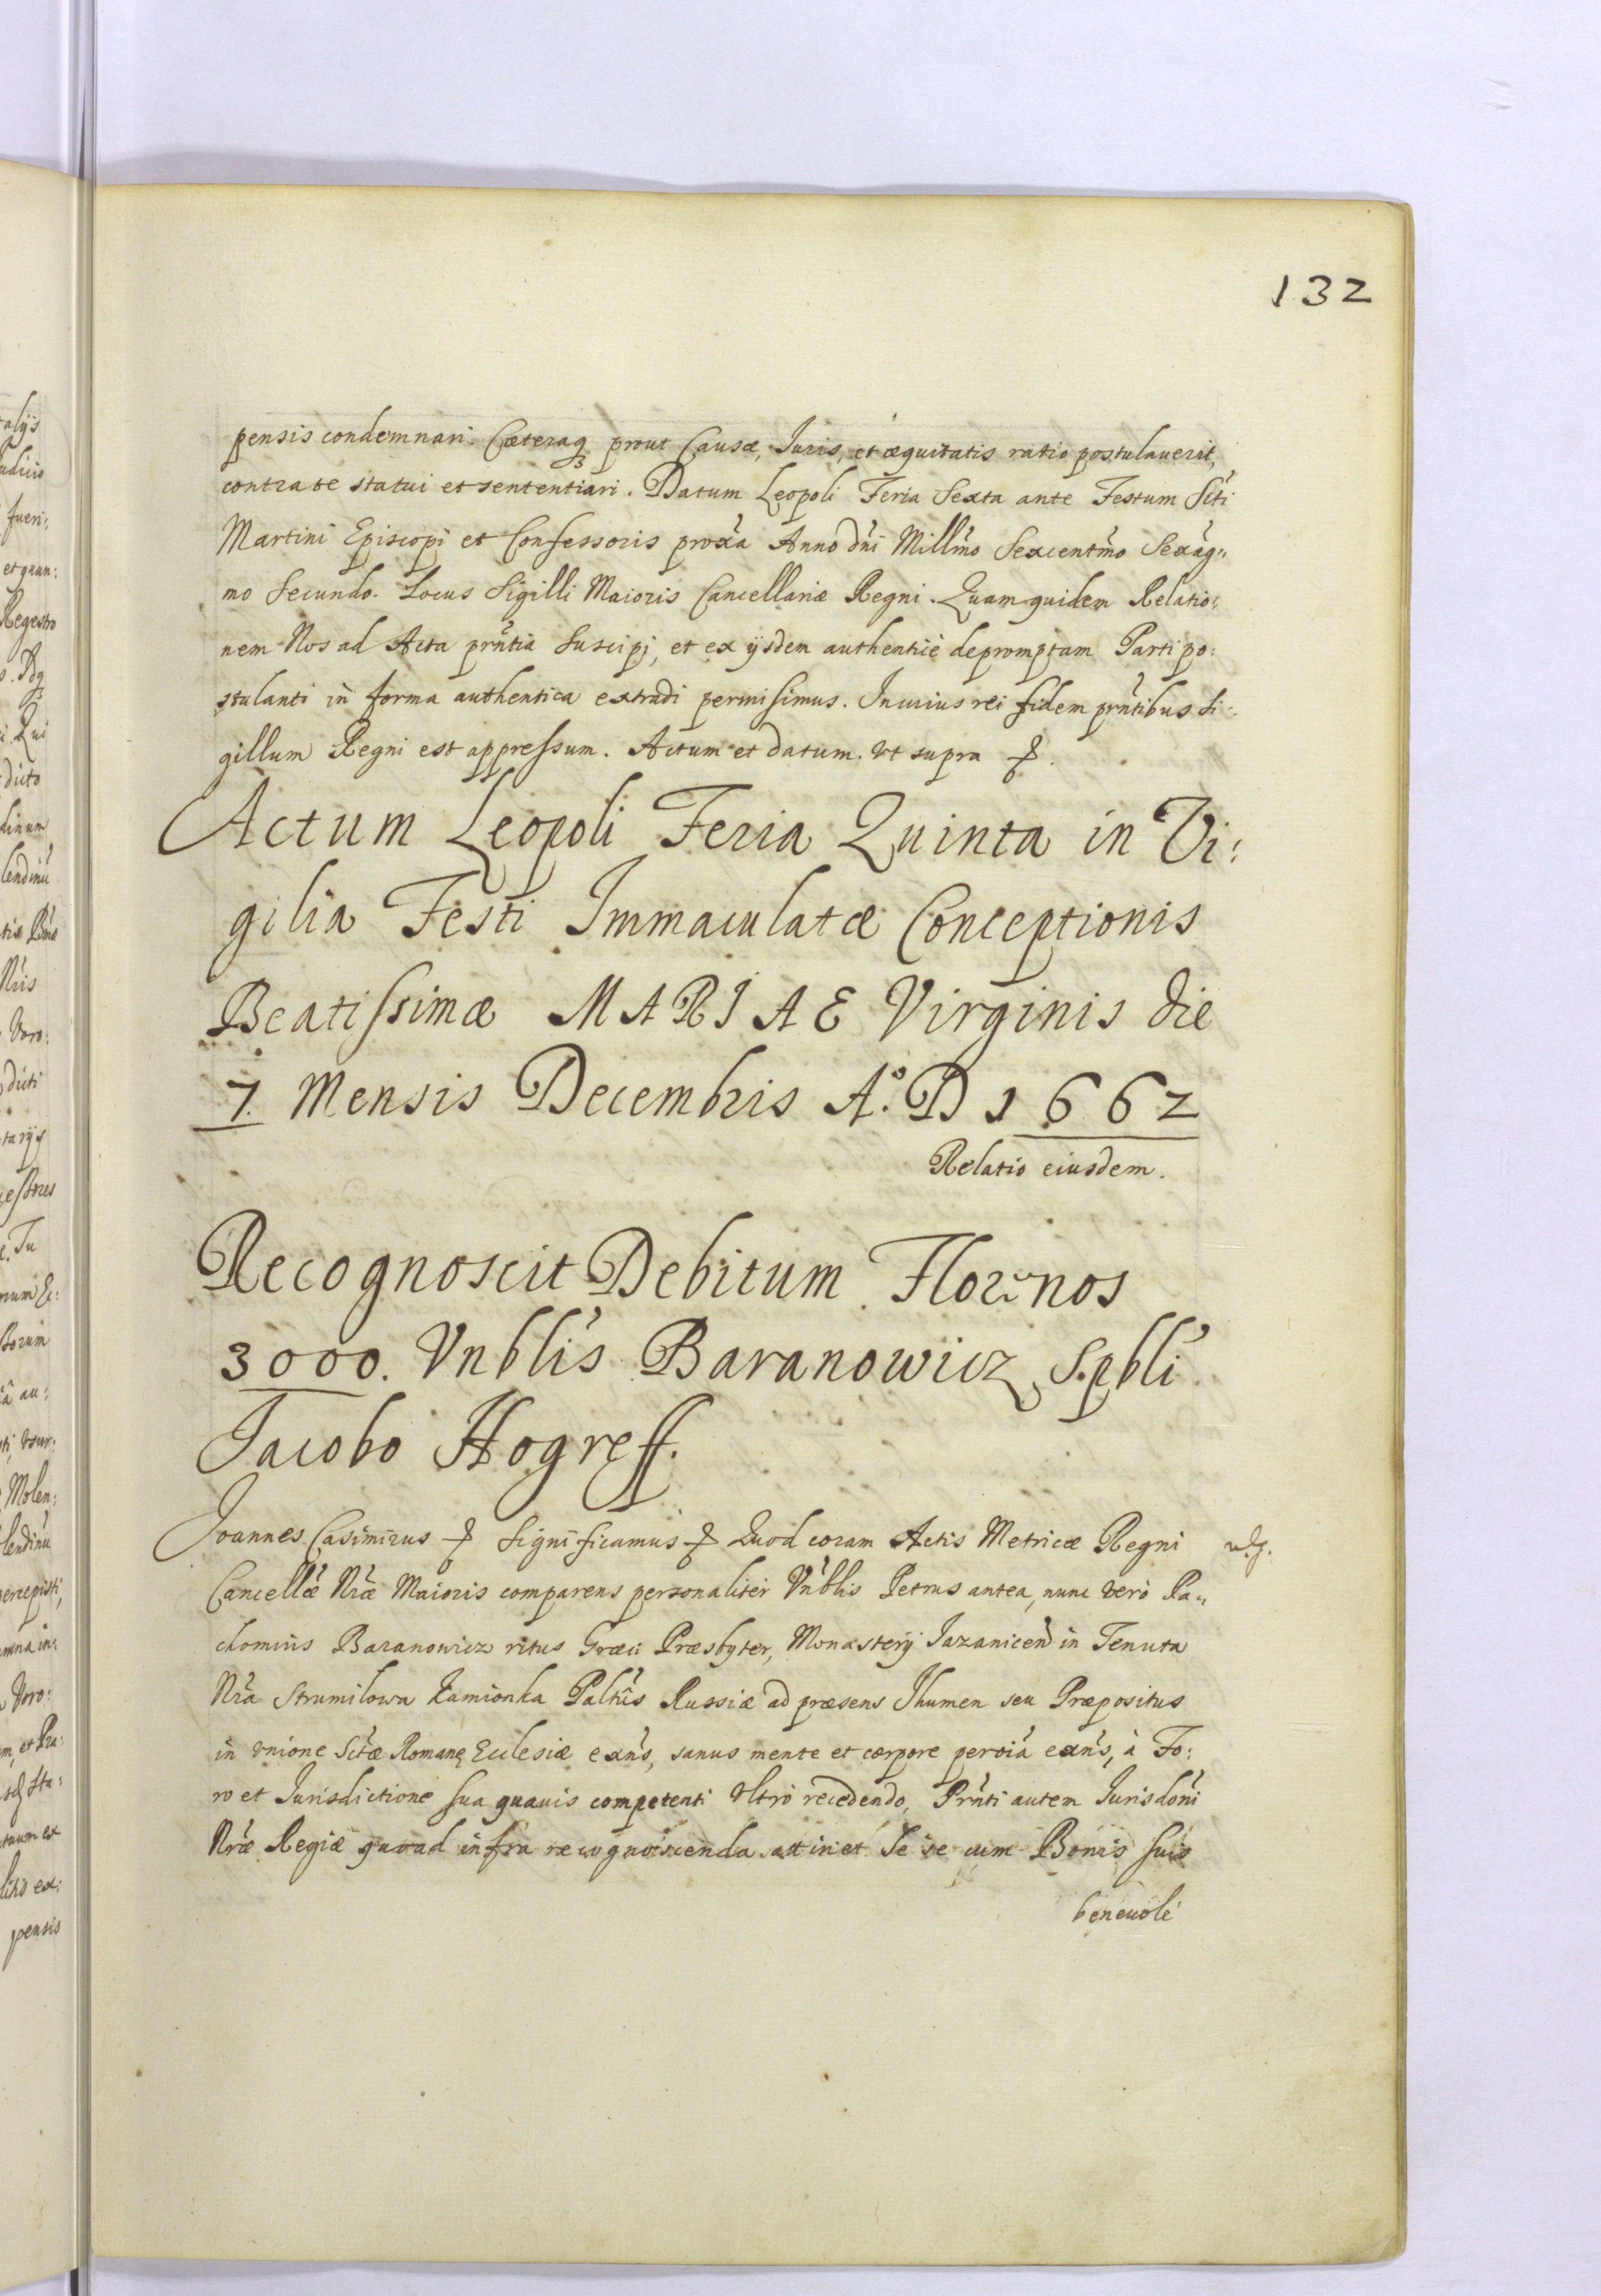 132
pensis condemnari. Cæteraq3 prout Causæ, Iuris, et æquitatis ratio postulauerit,
contra te statui et sententiari. Datum Leopoli Feria Sexta ante Festum Scti
Martini Episcopi et Confessoris proxa Anno dni Millmo Sexcentmo Sexag„
mo Secundo. Locus Sigilli Maioris Cancellariæ Regni. Quam quidem Relatio:
nem Nos ad Acta prntia Suscipi, et ex ijsdem authenticè depromptam Parti po:
stulanti in forma authentica extradi permisimus. In cuius rei fidem prntibus Si:
gillum Regni est appressum. Actum et datum. vt supra
Actum Leopoli Feria Quinta in Vi:
gilia Festi Immaculatæ Conceptionis
Beatissimæ MARIAE Virginis die
7. Mensis Decembris A.° D 1662
Relatio eiusdem.
Recognoscit Debitum Florenos
3000. Vnblis Baranowicz S.pbli
Jacobo Hogreff.
Joannes Casimirus Significamus Quod coram Actis Metricæ Regni
Cancellæ Nræ Maioris comparens personaliter Vnblis Petrus antea, nunc verò Pa„
chomius Baranowicz ritus Græci Præsbyter, Monasterij Jazanicen in Tenuta
Nra Strumilowa Kamionka Paltus Russiæ ad præsens Ihumen seu Præpositus
in vnione Sctæ Romanę Ecclesiæ exns, sanus mente et corpore per oia exns, à Fo:
ro et Jurisdictione sua quauis competenti vltrò recedendo, Prnti autem Jurisdoni
Nræ Regiæ quoad infra recognoscenda attinet Se se cum Bonis suis
beneuolè